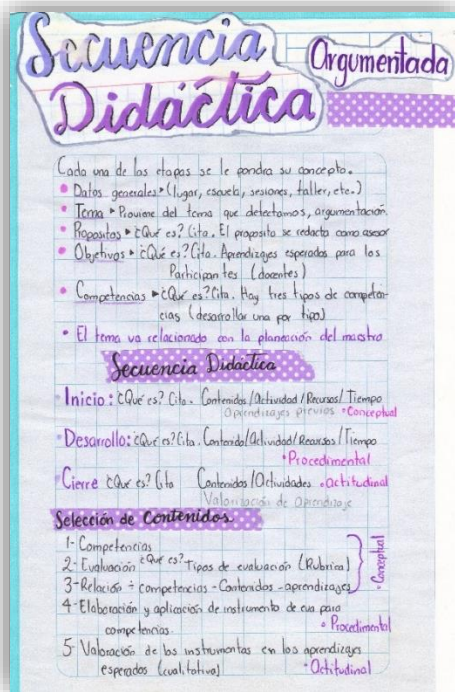 Secuencia
Didáctica
Argumentada
Cada una de las etapas se le pondra su concepto.
• Datos generales ▸ (lugar, escuela, sesiones, taller, etc.)
• Tema ▸ Proviene del tema que detectamos, argumentación.
• Propositos ▸ ¿Qué es? Cita. El proposito se redacta como asesor
• Objetivos ▸ ¿Qué es? Cita. Aprendizajes esperados para los
Participantes (docentes)
• Competencias ▸ ¿Qué es? Cita. Hay tres tipos de competen-
cias (desarrollar una por tipo)
• El tema va relacionado con la planeación del maestro
Secuencia Didáctica
• Inicio: ¿Qué es? Cita. Contenidos / Actividad / Recursos / Tiempo
Aprendizajes previos • Conceptual
• Desarrollo: ¿Qué es? Cita. Contenido / Actividad / Recursos / Tiempo
• Procedimental
Cierre ¿Qué es? Cita Contenidos / Actividades • actitudinal
Valorización de Aprendizaje
Selección de Contenidos
1- Competencias
2- Evaluación ¿Qué es? Tipos de evaluación (Rubrica)
3- Relación ÷ competencias - Contenidos - aprendizajes
• Conceptual
4- Elaboración y aplicación de instrumento de eva para
competencias.
• Procedimental
5- Valoración de los instrumentos en los aprendizajes
esperados (cualitativa)
• Actitudinal